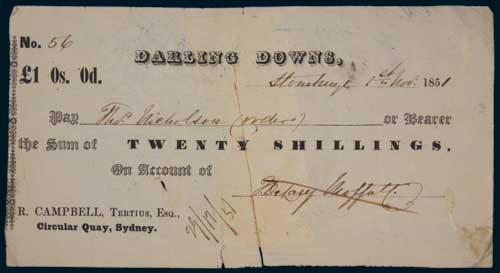 No. 56
DARLING DOWNS,
£1 0s. 0d.
Stonehenge 1st Novr. 1851
Pay Thos. Nicholson (orders) or Bearer
the Sum of TWENTY SHILLINGS,
On Account of
Moffatt
R. CAMPBELL, TERTIUS, ESQ.,
Circular Quay, Sydney.
29/12/51